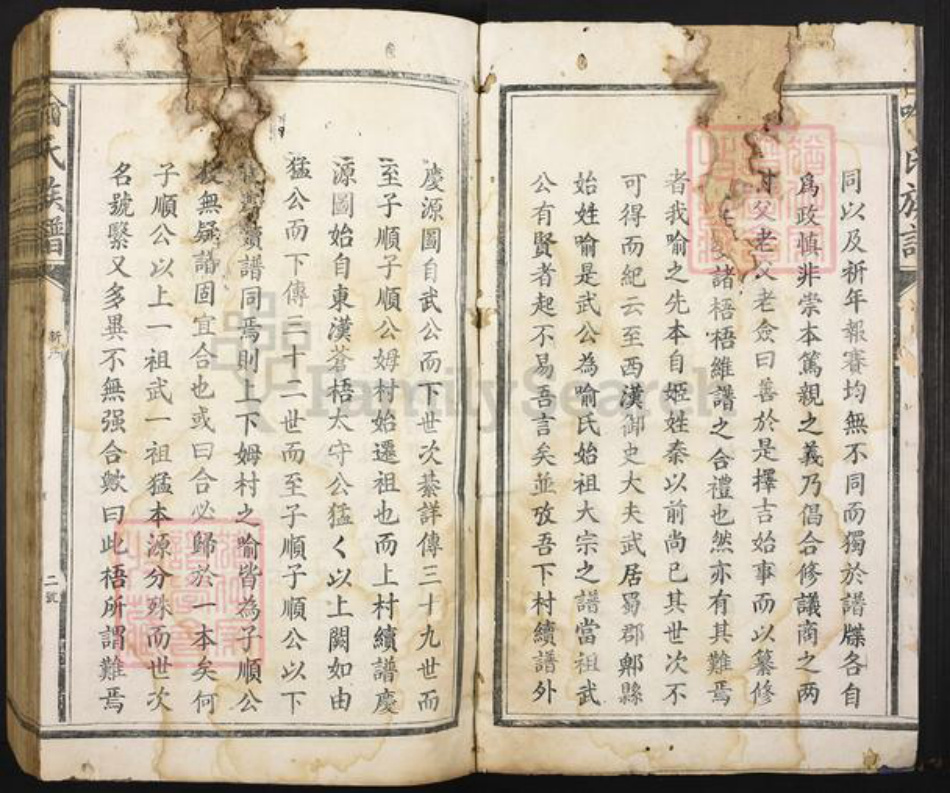 同以及祈年報賽均無不同而獨於譜牒各自
為政慎非崇本篤親之義乃倡合修議商之兩
村父老父老僉曰善於是擇吉始事而以纂修
諸梧梧維譜之合禮也然亦有其難焉
者我喻之先本自姬姓秦以前尚已其世次不
可得而紀云至西漢御史大夫武居蜀郡郫縣
始姓喻是武公為喻氏始祖大宗之譜當祖武
公有賢者起不易吾言矣並攷吾下村續譜外
慶源圖自武公而下世次綦詳傳三十九世而
至子順子順公姆村始遷祖也而上村續譜慶
源圖始自東漢蒼梧太守公猛く以上闕如由
猛公而下傳三十二世而至子順子順公以下
續譜同焉則上下姆村之喻皆為子順公
後無疑譜固宜合也或曰合必歸於一本矣何
子順公以上一祖武一祖猛本源分殊而世次
名號緊又多異不無强合歟曰此梧所謂難焉
喻氏族譜
新序
二號
氏族譜
FamilySearch